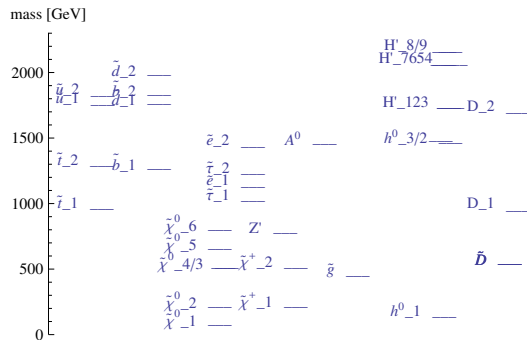 mass [GeV]
2000
1500
1000
500
0
ũ_2
ũ_1
t̃_2
t̃_1
d̃_2
b̃_2
d̃_1
b̃_1
ẽ_2
τ̃_2
ẽ_1
τ̃_1
χ̃⁰_6
χ̃⁰_5
χ̃⁰_4/3
χ̃⁰_2
χ̃⁰_1
A⁰
Z'
χ̃⁺_2
χ̃⁺_1
g̃
H'_8/9
H'_7654
H'_123
h⁰_3/2
h⁰_1
D_2
D_1
D̃